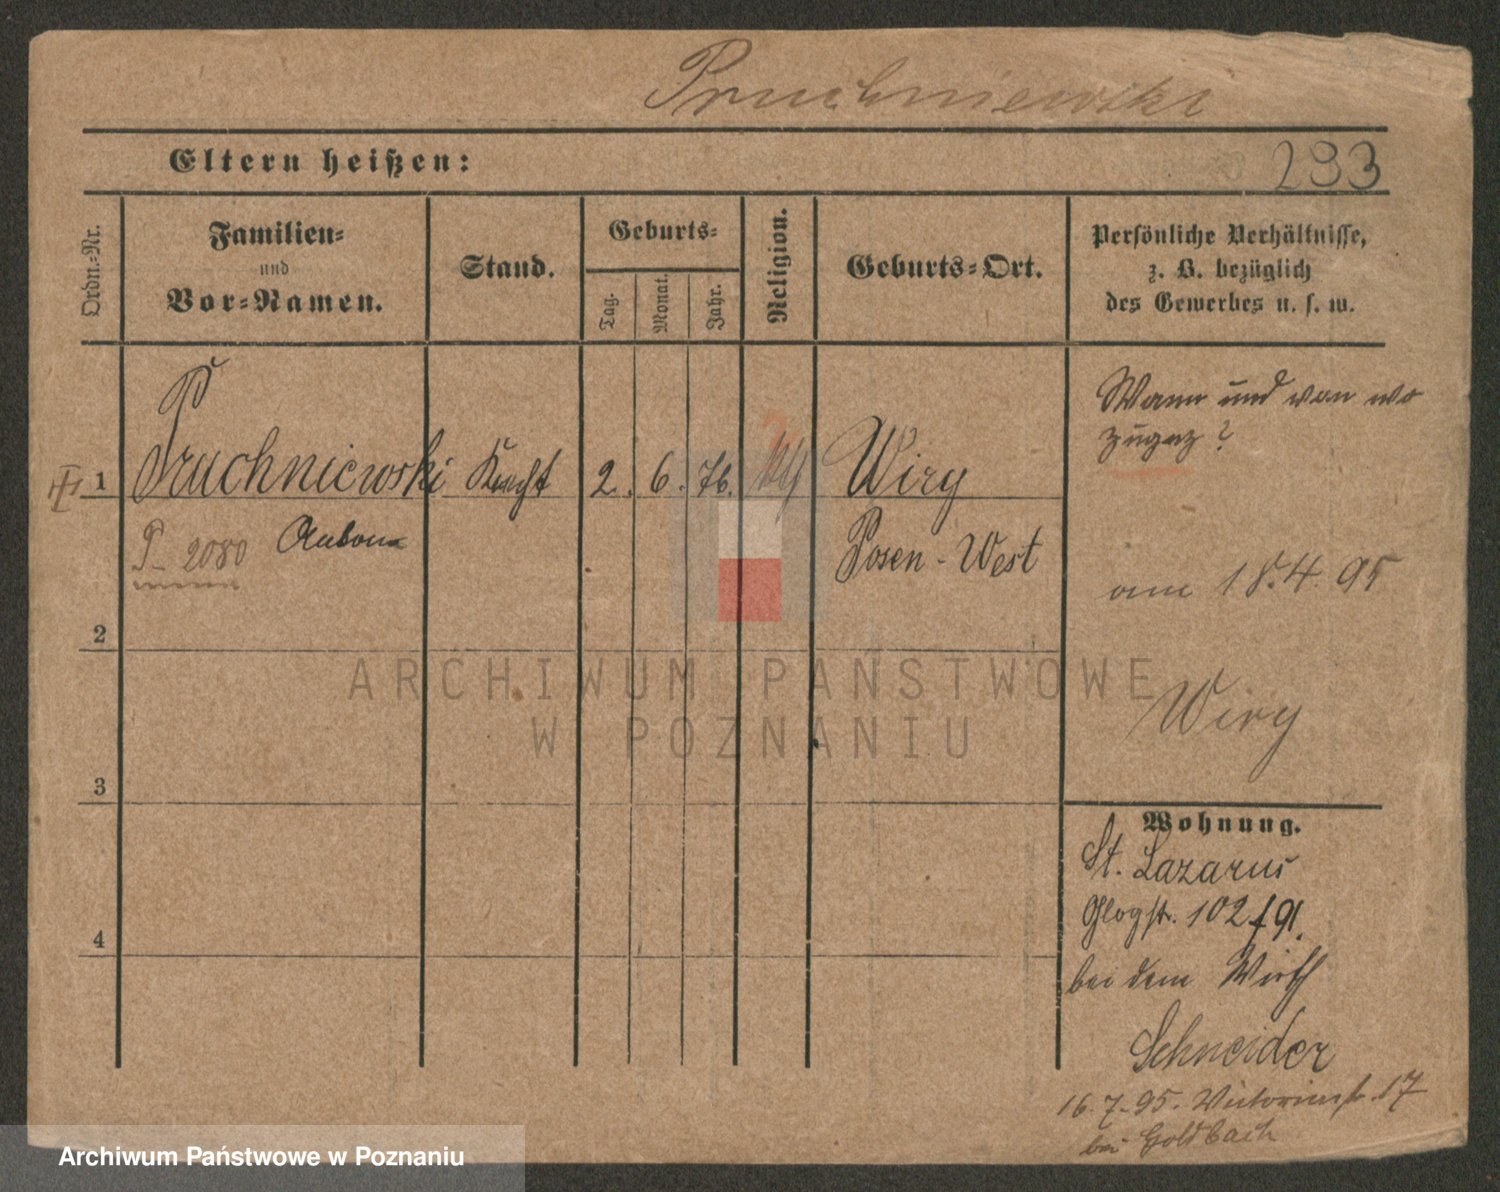 Pruchniewski
Eltern heißen:
233
Ordn.-Nr.
Familien-
und
Vor-Namen.
Stand.
Geburts-
Tag.
Monat.
Jahr.
Religion.
Geburts-Ort.
Persönliche Verhältnisse,
z. B. bezüglich
des Gewerbes u. s. w.
Wann und von wo
zugez?
1
Pruchniewski Knecht 2. 6. 76. Wiry
P 2080
Posen-West
am 18.4.95
2
Wiry
3
4
Wohnung.
St. Lazarus
Glogstr. 102/91.
bei dem Wirth
Schneider
16.7.95. Victoriastr. 17
bei Goldbach
ARCHIWUM PAŃSTWOWE
W POZNANIU
Archiwum Państwowe w Poznaniu